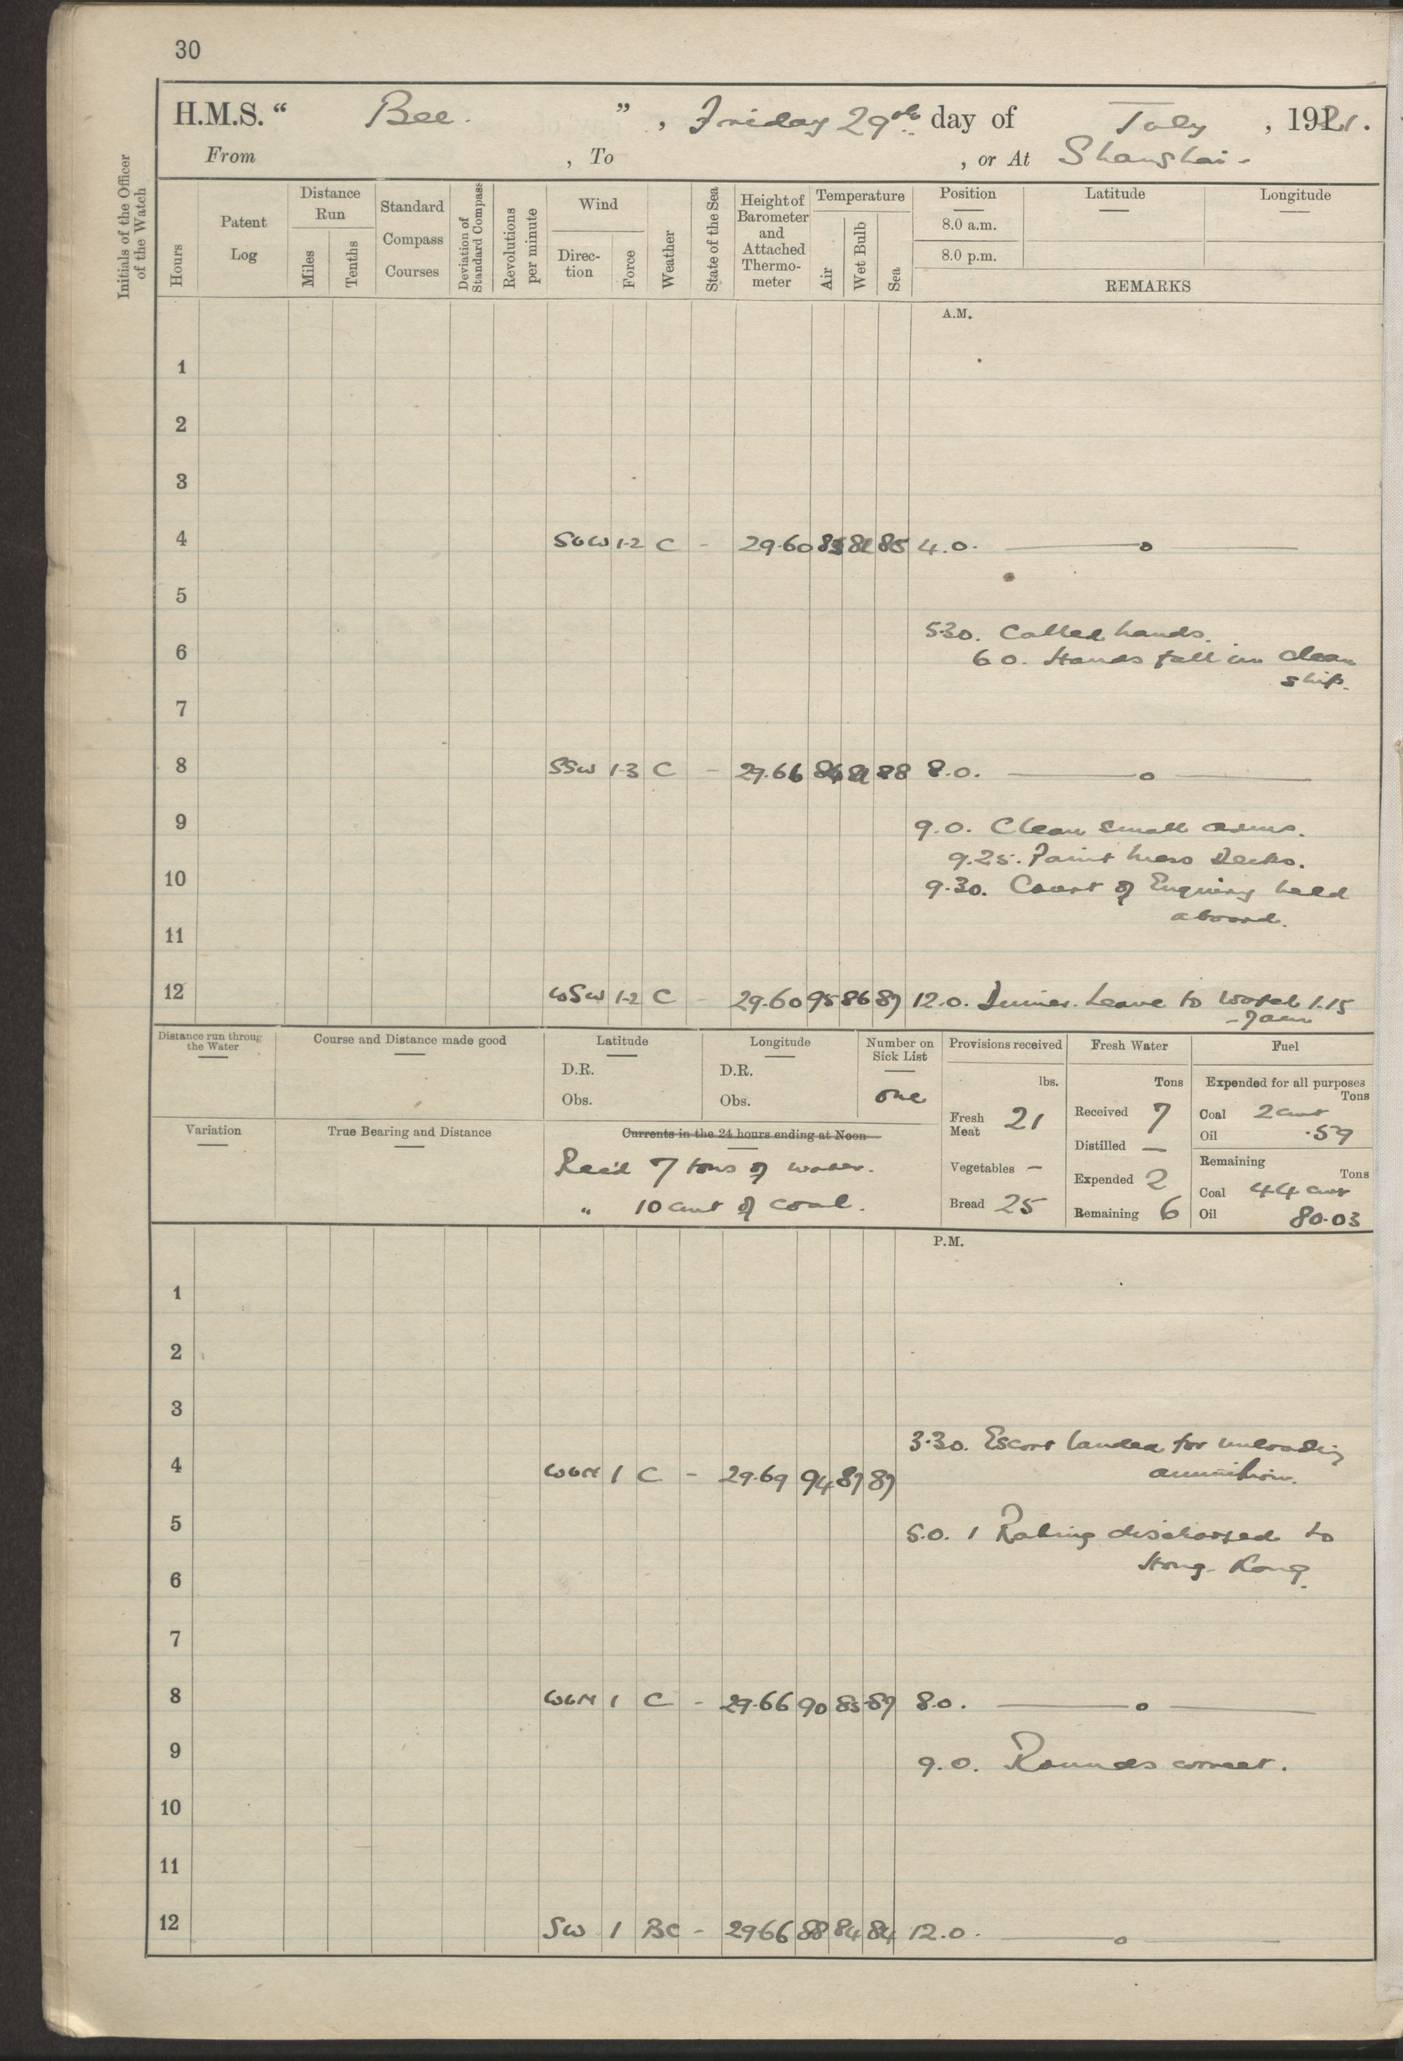 30
H.M.S. “ Bee. ” , Friday 29th day of July , 1921.
From , To , or At Shanghai -
Initials of the Officer of the Watch
Hours
Patent Log
Distance Run
Miles
Tenths
Standard Compass Courses
Deviation of Standard Compass
Revolutions per minute
Wind
Direction
Force
Weather
State of the Sea
Height of Barometer and Attached Thermometer
Temperature
Air
Wet Bulb
Sea
Position Latitude Longitude
8.0 a.m.
8.0 p.m.
REMARKS
A.M.
1
2
3
4 SbW 1-2 C - 29.60 85 81 85 4.0. ——o——
5
5.30. Called hands.
6 6.0. Hands fall in clean
ship.
7
8 SSW 1-3 C - 29.66 86 81 88 8.0. ——o——
9 9.0. Clean small arms.
9.25. Paint mess Decks.
10 9.30. Court of Enquiry held
aboard.
11
12 WSW 1-2 C - 29.60 95 86 87 12.0. Dinner. Leave to watch 1.15
- 7am
Distance run through the Water
Course and Distance made good
Latitude
D.R.
Obs.
Longitude
D.R.
Obs.
Number on Sick List
one
Provisions received
lbs.
Fresh Meat 21
Vegetables -
Bread 25
Fresh Water
Tons
Received 7
Distilled —
Expended 2
Remaining 6
Fuel
Expended for all purposes
Tons
Coal 2 cwt
Oil .59
Remaining
Tons
Coal 44 cwt
Oil 80.03
Variation
True Bearing and Distance
Currents in the 24 hours ending at Noon
Rec'd 7 tons of water.
" 10 cwt of coal.
P.M.
1
2
3
3.30. Escort landed for unloading
4 WbN 1 C - 29.69 94 87 87 ammunition.
5 5.0. 1 Rating discharged to
Hong-Kong.
6
7
8 WbN 1 C - 29.66 90 85 87 8.0. ——o——
9 9.0. Rounds correct.
10
11
12 SW 1 BC - 29.66 88 84 84 12.0. ——o——